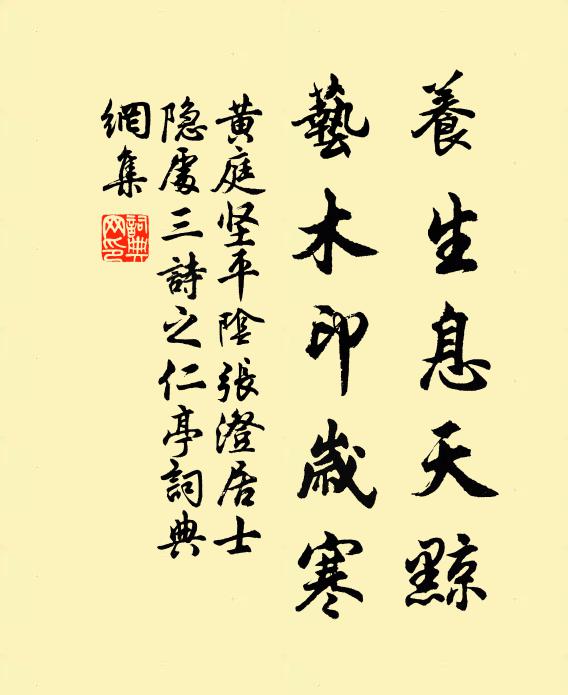 養生息天黥
藝木印歲寒
黄庭坚平陰張澄居士
隐處三詩之仁亭詞典
網集
詞典
网印